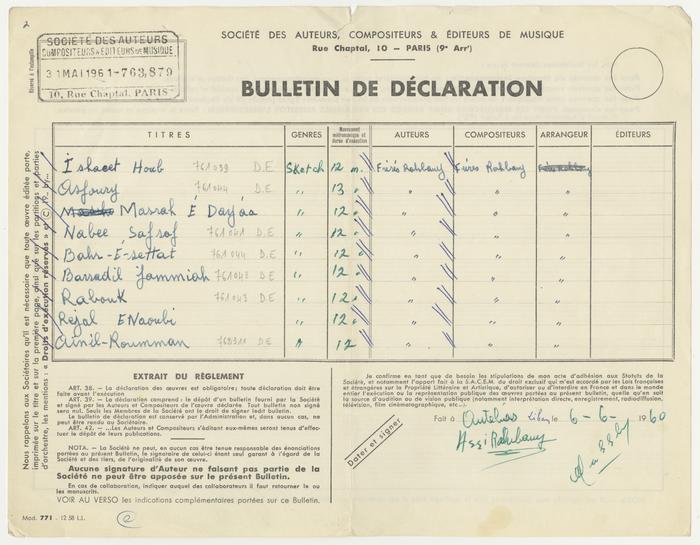 2
SOCIÉTÉ DES AUTEURS, COMPOSITEURS & ÉDITEURS DE MUSIQUE
Rue Chaptal, 10 — PARIS (9e Arrt)
Réservé à l'estampille
SOCIÉTÉ DES AUTEURS
COMPOSITEURS & ÉDITEURS DE MUSIQUE
31 MAI 1961-763,879
10, Rue Chaptal. PARIS
BULLETIN DE DÉCLARATION
TITRES GENRES Mouvement métronomique et durée d'exécution AUTEURS COMPOSITEURS ARRANGEUR ÉDITEURS
Ishacet Houb 761039 D.E Sketch 12 m. Frères Rahbany Frères Rahbany
Asfoury 761044 D.E " 13 " " " "
Masrah É Dayáa " 12 " " " "
Nabee Safsaf 761041 D.E " 12 " " " "
Bahr-É-settat 761044 D.E " 12 " " " "
Barradil Jammiah 761042 D.E " 12 " " " "
Rabouk 761043 D.E " 12 " " " "
Rejal ENaoubi " 12 " " " "
Ainél-Roumman D.E " 12 " " " "
Nous rappelons aux Sociétaires qu'il est nécessaire que toute œuvre éditée porte,
imprimée sur le titre et sur la première page, ainsi que sur les partitions et parties
d'orchestre, les mentions : « Droits d'exécution réservés » et (C) 19.. by...
EXTRAIT DU RÈGLEMENT
ART. 38. — La déclaration des œuvres est obligatoire; toute déclaration doit être
faite avant l'exécution
ART. 39. — La déclaration comprend : le dépôt d'un bulletin fourni par la Société
et signé par les Auteurs et Compositeurs de l'œuvre déclarée. Tout bulletin non signé
sera nul. Seuls les Membres de la Société ont le droit de signer ledit bulletin.
Le bulletin de déclaration est conservé par l'Administration et, dans aucun cas, ne
peut être rendu au Sociétaire.
ART. 42. — ...Les Auteurs et Compositeurs s'éditant eux-mêmes seront tenus d'effec-
tuer le dépôt de leurs publications.
NOTA. — La Société ne peut, en aucun cas être tenue responsable des énonciations
portées au présent Bulletin, le signataire de celui-ci étant seul garant à l'égard de la
Société et des tiers, de l'originalité de son œuvre.
Aucune signature d'Auteur ne faisant pas partie de la
Société ne peut être apposée sur le présent Bulletin.
En cas de collaboration, indiquer auquel des collaborateurs il faut retourner le ou
les manuscrits.
VOIR AU VERSO les indications complémentaires portées sur ce Bulletin.
Je confirme en tant que de besoin les stipulations de mon acte d'adhésion aux Statuts de la
Société, et notamment l'apport fait à la S.A.C.E.M. du droit exclusif qui m'est accordé par les Lois françaises
et étrangères sur la Propriété Littéraire et Artistique, d'autoriser ou d'interdire en France et dans le monde
entier l'exécution ou la représentation publique des œuvres portées au présent bulletin, quelle qu'en soit
la source d'audition ou de vision publique (notamment interprétation directe, enregistrement, radiodiffusion,
télévision, film cinématographique, etc...)
Fait à Antelias Liban le 6-6- 1960
Dater et signer
Assi Rahbany
Mod. 771 - 12.58 I.I.
2